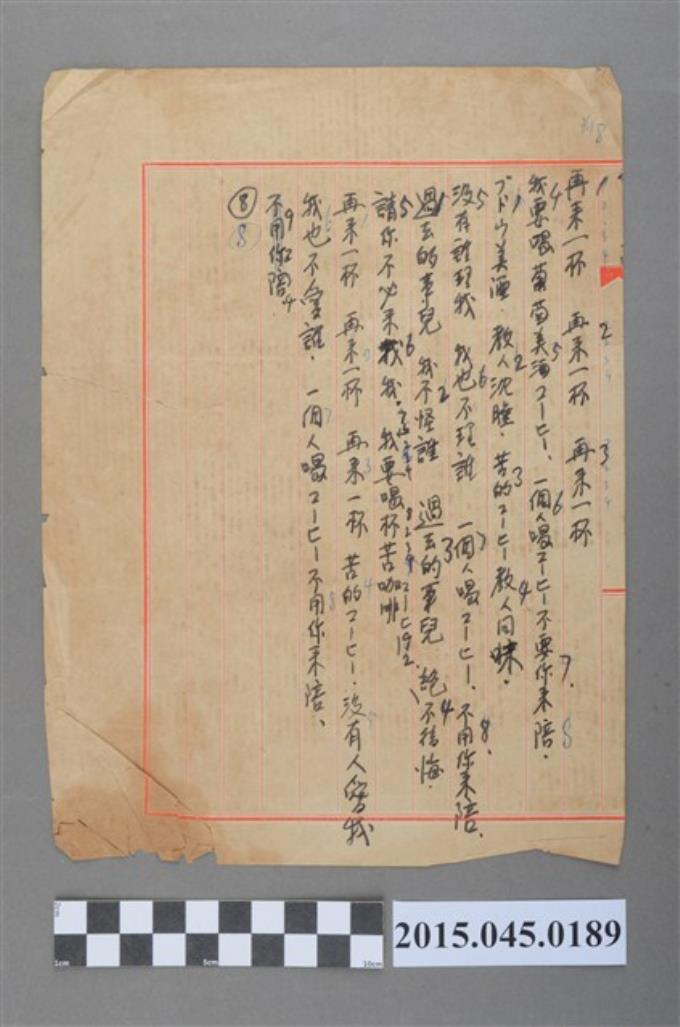 118
再来一杯 再来一杯 再来一杯
我要喝葡萄美酒コーヒー、一個人喝コーヒー不要你来陪.
ブドウ美酒.教人沈睡.苦的コーヒー教人回味.
没有誰理我 我也不理誰 一個人喝コーヒー、不用你来陪、
過去的事兒 我不怪誰 過去的事兒 絶不後悔.
請你不必来找我.我要喝杯苦咖啡
再来一杯 再来一杯 再来一杯 苦的コーヒー.没有人愛我
我也不愛誰.一個人喝コーヒー不用你来陪、
不用你陪.
⑧
8
0cm 1cm 5cm 10cm
2015.045.0189